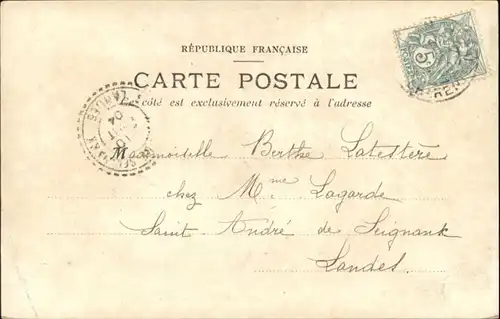 RÉPUBLIQUE FRANÇAISE
CARTE POSTALE
côté est exclusivement réservé à l'adresse
Mademoiselle Berthe Latestère
chez Mme Lagarde
Saint-André de Seignank
Landes.
5
04